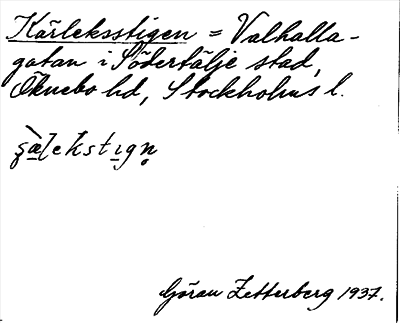 Kärleksstigen = Valhalla-
gatan i Södertälje stad,
Öknebo hd, Stockholms l.
Göran Zetterberg 1937.